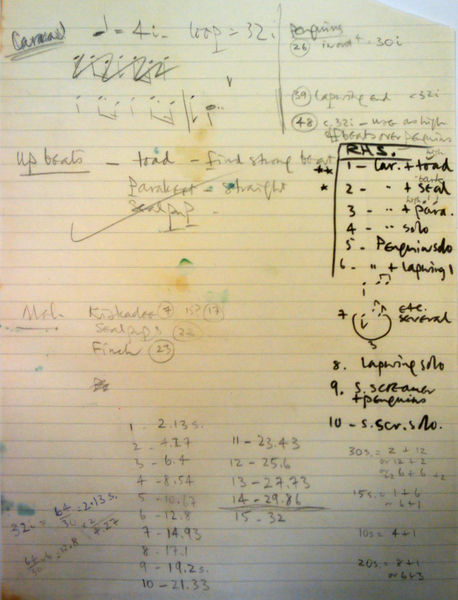 Caravad ♩ = 4i. loop = 32i
Penguins
26 30i
39 Lapwing end c32i
48 c.32i - use as high
offbeats over penguins
Up beats - toad - find strong beat
Parakeet - straight
Seal pup
R.H.S.
** 1 - Car. + toad
* 2 - " + seal
3 - " + para.
4 - " solo
5 - Penguin solo
6 - " + Lapwing 1
i
7 i etc.
several
3
8. Lapwing solo
9. S. screamer
+ penguins
10 - S. scr. solo.
Mel. Kiskadee 7 15? 17
Seal pups 22
Finch 23
1 - 2.13s.
2 - 4.27
3 - 6.4
4 - 8.54
5 - 10.67
6 - 12.8
7 - 14.93
8 - 17.1
9 - 19.2s.
10 - 21.33
11 - 23.43
12 - 25.6
13 - 27.73
14 - 29.86
15 - 32
32i = 64/30 = 2.13s.
x2
4.27
64/30 x 6 = 12.8
30s. = 2 + 12
or 12 + 2
or 6 + 6 + 2
15s. = 1 + 6
or 6+1
10s = 4+1
20s = 8+1
or 6+3